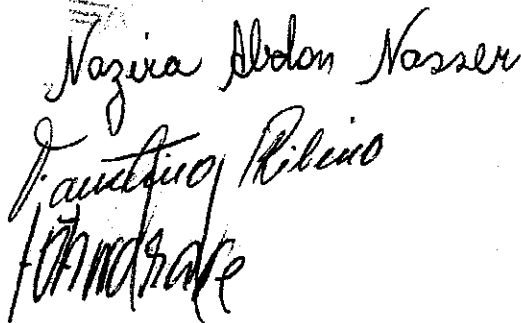 Nazira Abdon Nasser
Faustino Ribeiro